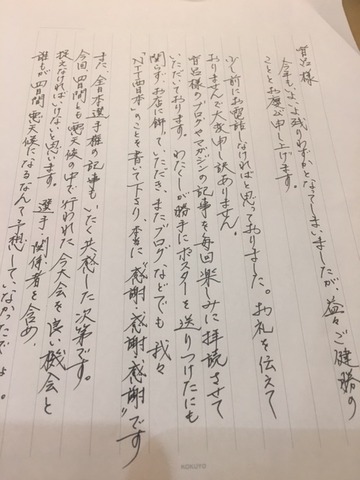 宮呂様
今年もいよいよ残りわずかとなってしまいましたが、益々ご健勝の
こととお慶び申し上げます。
少し前にお電話しなければと思っておりました。お礼を伝えて
おりませんで大変申し訳ありません。
宮呂様のブログやマガジンの記事を毎回楽しみに拝読させて
いただいております。わたくしが勝手にポスターを送りつけたにも
関らず、お店に飾っていただき、またブログなどでも我々
“NTT西日本”のことを書いて下さり、本当に“感謝・感謝・感謝”です
また、全日本選手権の記事もいたく共感した次第です。
今回、四日間とも悪天候の中で行われた今大会を良い機会と
捉えなければいけないと思います。選手・関係者を含め、
誰もが四日間悪天候になるなんて予想していなかったでしょう。
KOKUYO